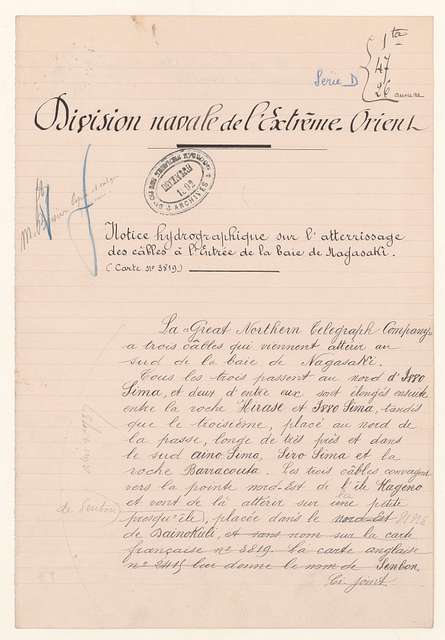 1ta
47
26 annexe
Série D
Division navale de l'Extrême-Orient
ARCHIVES
Notice hydrographique sur l'atterrissage
des câbles à l'Entrée de la baie de Nagasaki.
(Carte no 3819)
La "Great Northern Telegraph Company"
a trois câbles qui viennent attérir au
sud de la baie de Nagasaki.
Tous les trois passent au nord d'Iwo
Sima, et deux d'entre eux sont élongés ensuite
entre la roche Hirase et Iwo Sima, tandis
que le troisième, placé au nord de
la passe, longe de très près et dans
le sud aino Sima, Siro Sima et la
roche Barracouta. Les trois câbles convergent
vers la pointe nord-Est de l'île Kageno
et vont de là attérir sur une petite
presqu'île, placée dans le nord-Est
de Senbon
de Dainokuti, et sans nom sur la carte
française no 3819. La carte anglaise
no 2415 lui donne le nom de Senbon.
Ci-joint